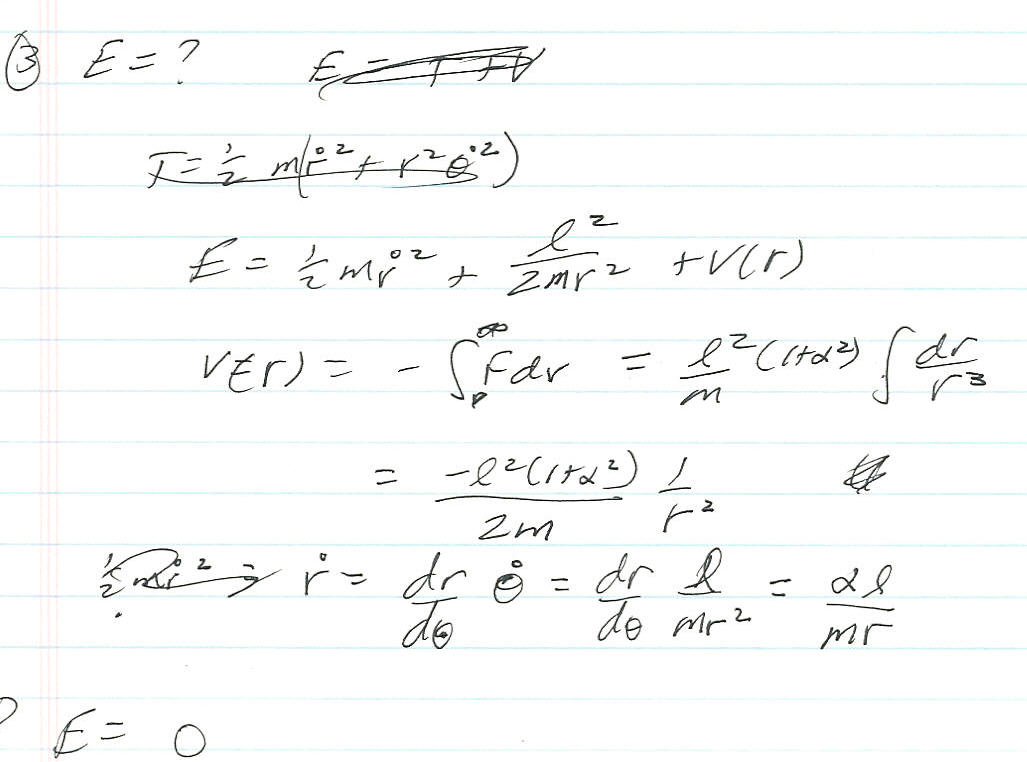 ③ E = ? E = T + V
T = ½ m(ṙ² + r²θ̇²)
E = ½ mṙ² + l²/2mr² + V(r)
V(r) = - ∫ F dr = l²(1+α²)/m ∫ dr/r³
= -l²(1+α²)/2m 1/r²
½ mṙ² ⇒ ṙ = dr/dθ θ̇ = dr/dθ l/mr² = αl/mr
? E = 0